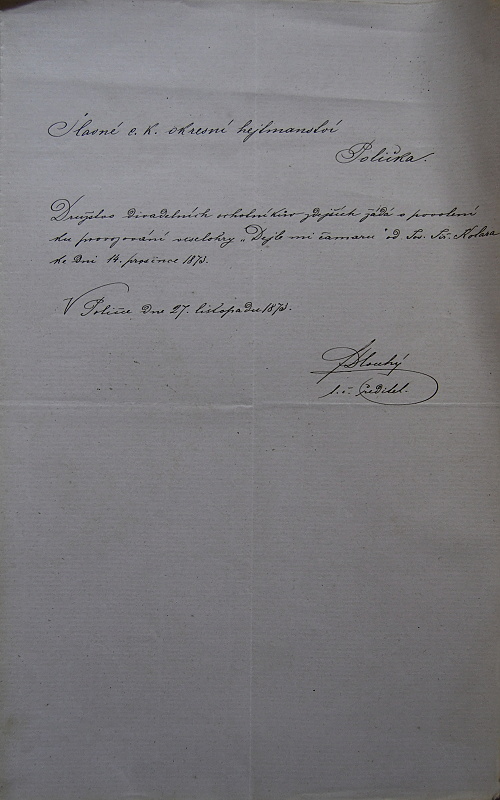 Slavné c. k. okresní hejtmanství
Polička.
Družstvo divadelních ochotníkův zdejších žádá o povolení
ku provozování veselohry „Dejte mi čamaru" od Jos. Jiř. Kolára
ke dni 14. prosince 1873.
V Poličce dne 27. listopadu 1873.
Dlouhý
t. č. ředitel.